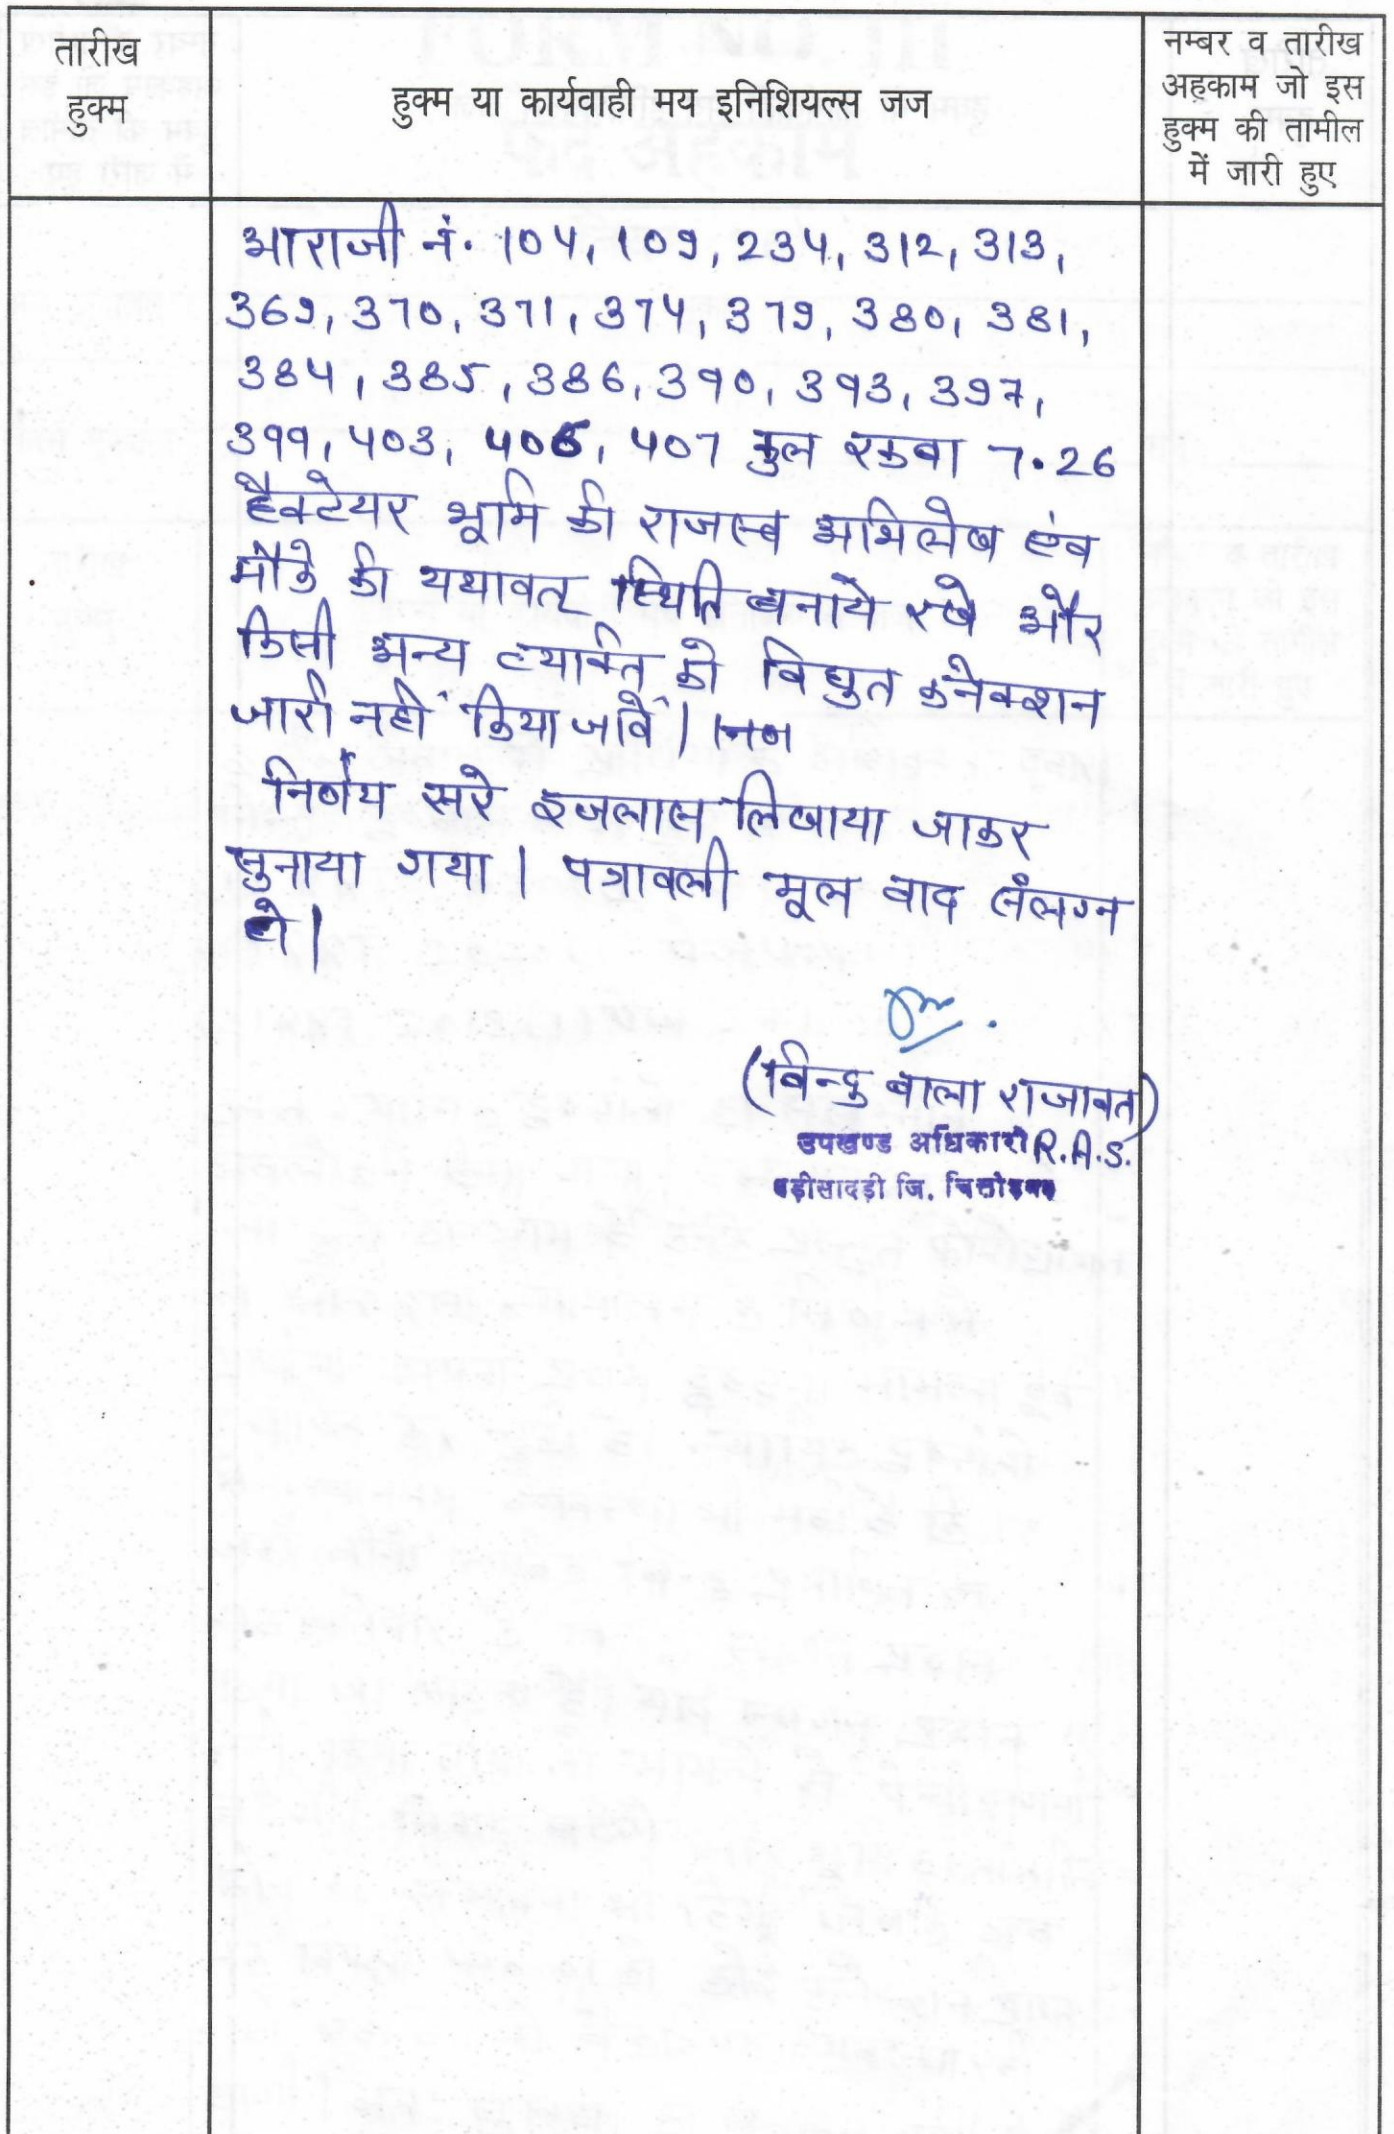 तारीख
हुक्म
हुक्म या कार्यवाही मय इनिशियल्स जज
नम्बर व तारीख
अहकाम जो इस
हुक्म की तामील
में जारी हुए
आराजी नं. 104, 109, 234, 312, 313,
369, 370, 371, 374, 379, 380, 381,
384, 385, 386, 390, 393, 397,
399, 403, 406, 407 कुल रकबा 7.26
हैक्टेयर भूमि की राजस्व अभिलेख एंव
मौके की यथावत् स्थिति बनाये रखे और
किसी अन्य व्यक्ति को विद्युत कनेक्शन
जारी नहीं किया जावें।
निर्णय सरे इजलास लिखाया जाकर
सुनाया गया। पत्रावली मूल वाद संलग्न
हो।
(बिन्दु बाला राजावत)
उपखण्ड अधिकारी R.A.S.
बड़ीसादड़ी जि. चित्तोड़गढ़